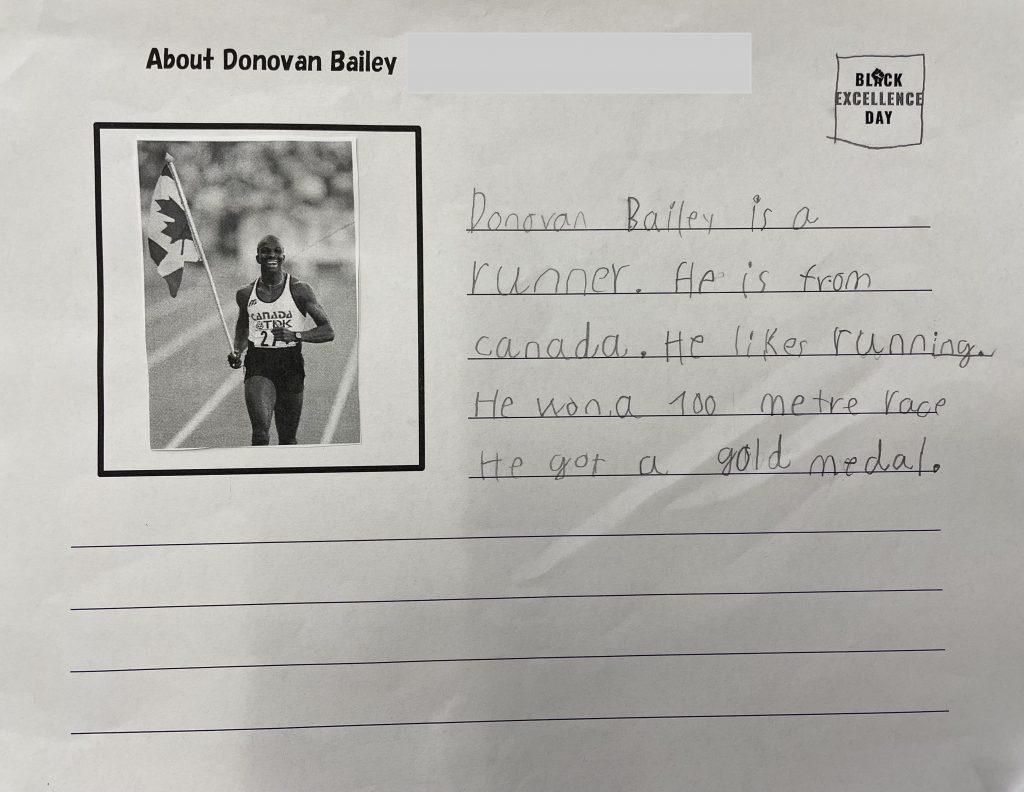 About Donovan Bailey
BLACK
EXCELLENCE
DAY
CANADA
TDK
27
Donovan Bailey is a
runner. He is from
canada. He likes running.
He won a 100 metre race
He got a gold medal.